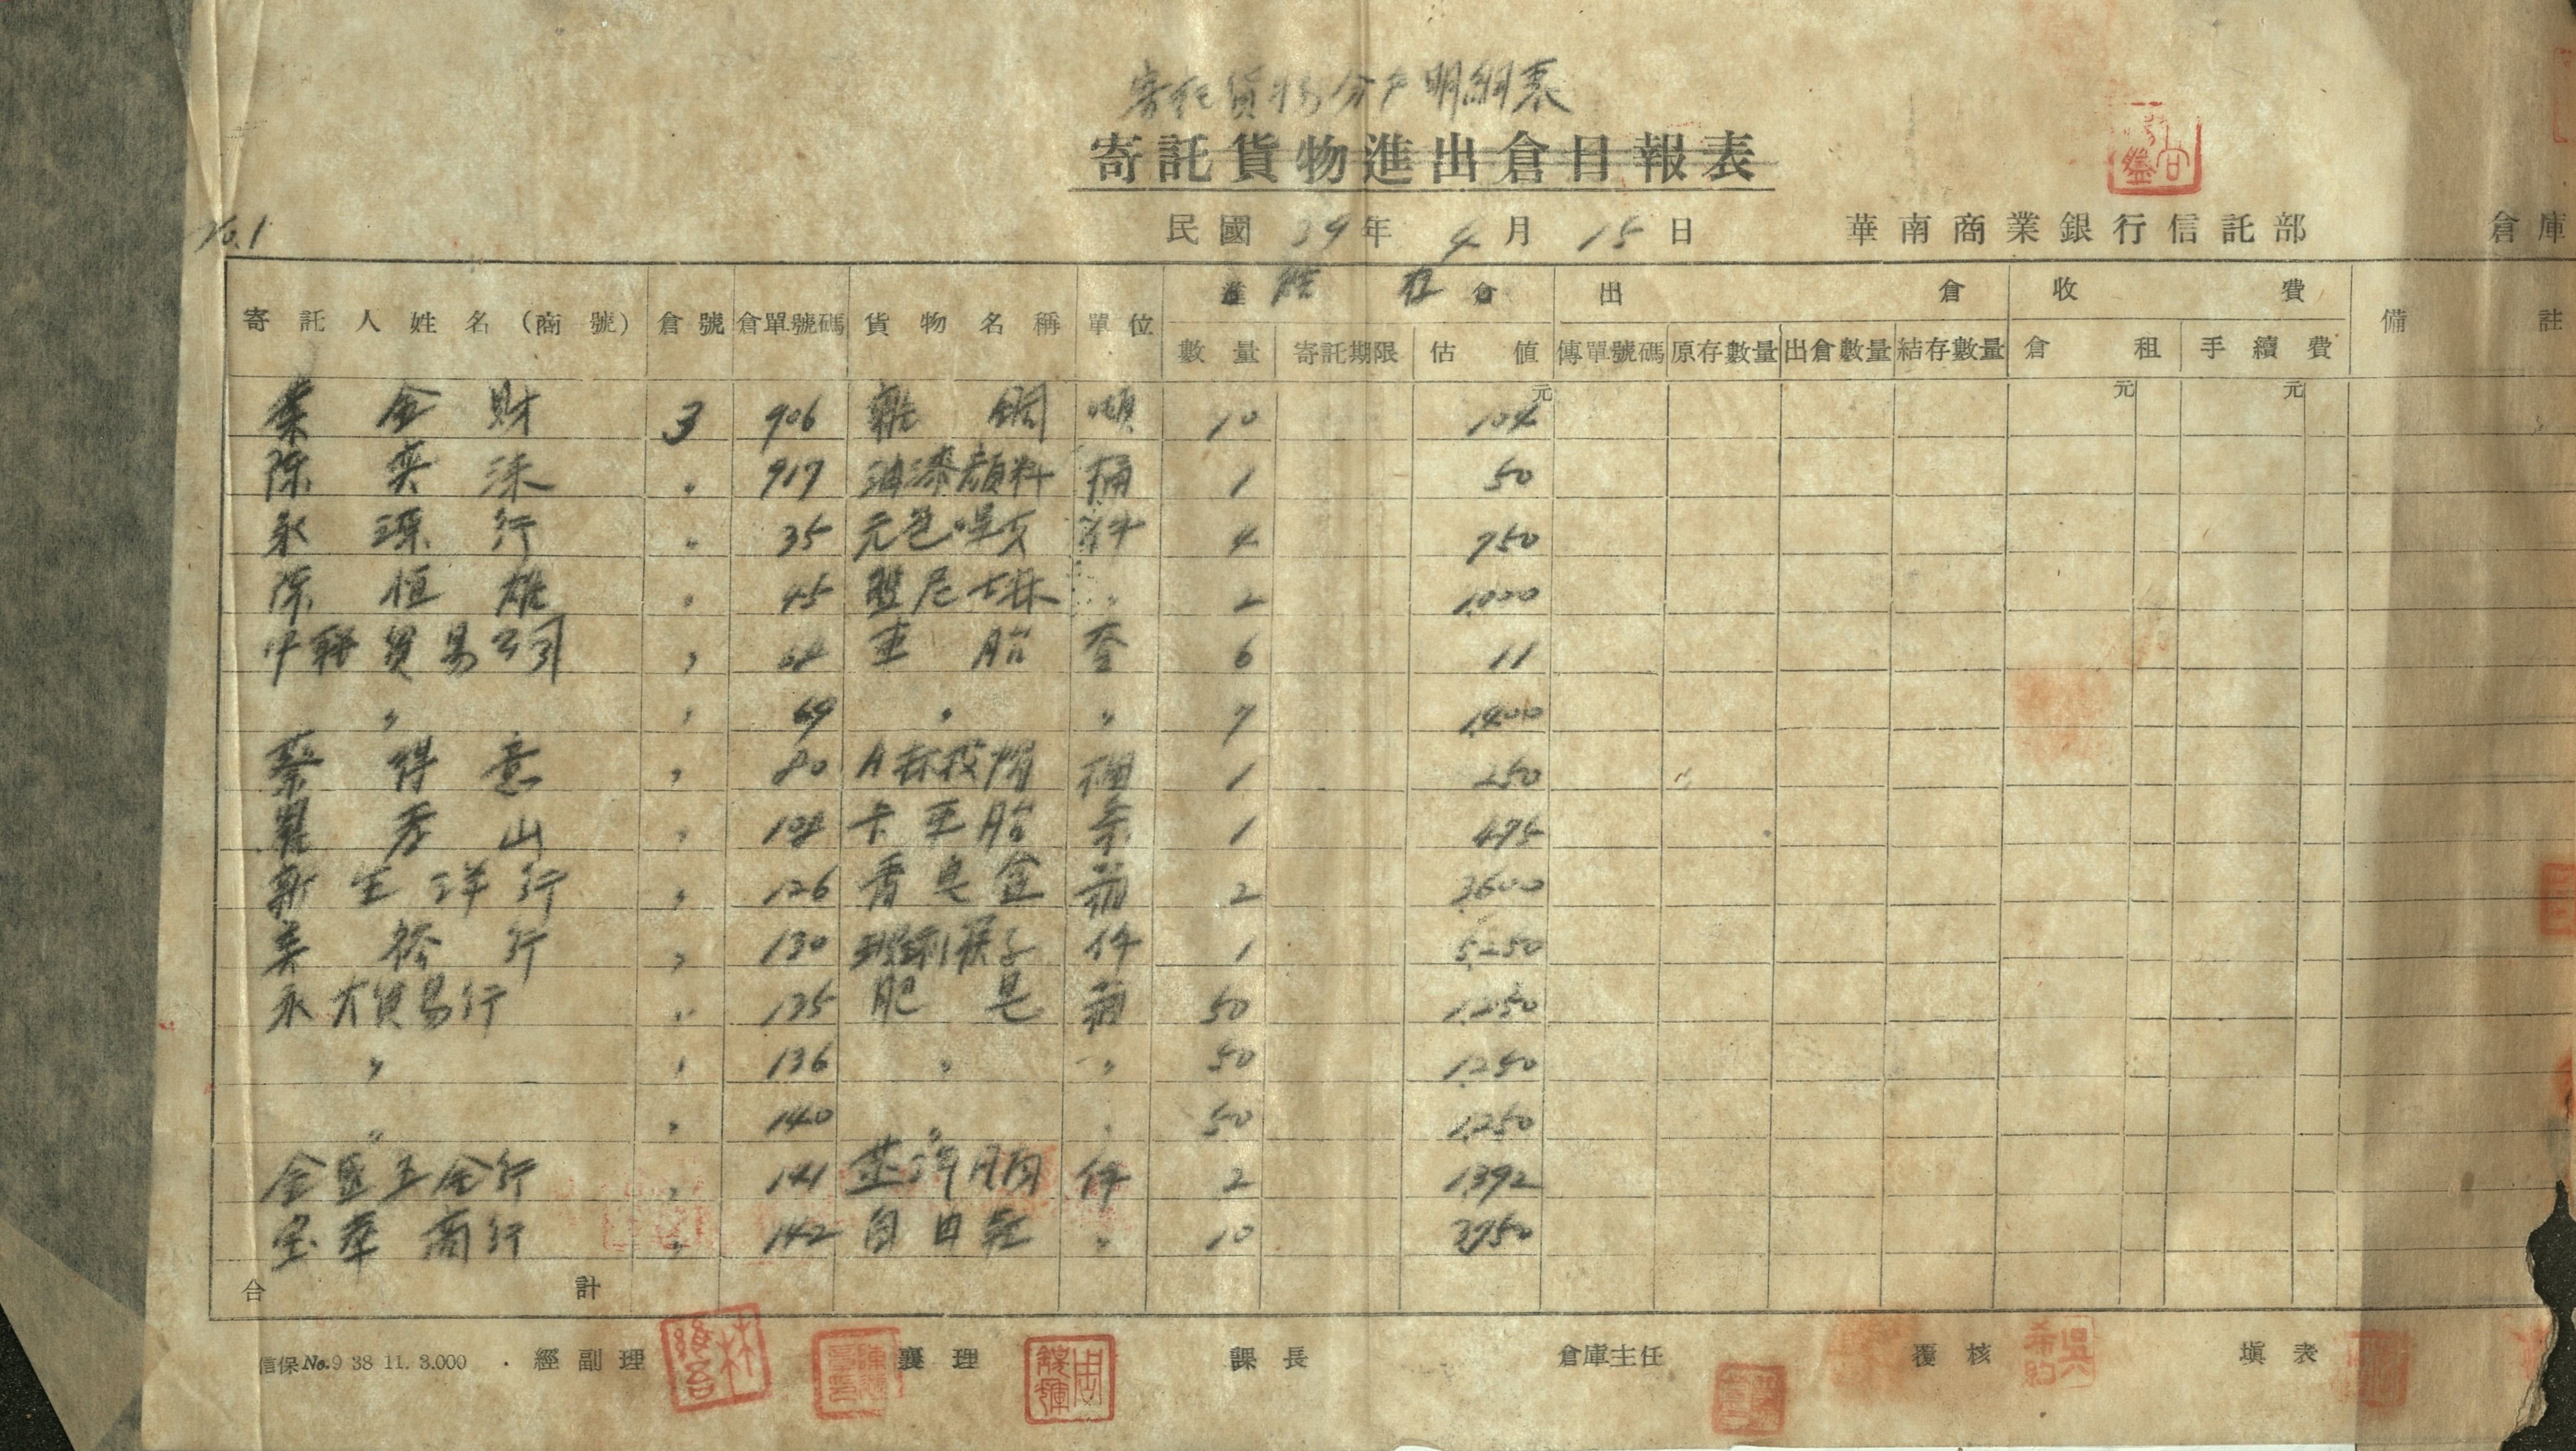 寄託貨物分戶明細表
寄託貨物進出倉日報表
No.1 民國 39年 4月 15日 華南商業銀行信託部 倉庫
寄託人姓名(商號) 倉號 倉單號碼 貨物名稱 單位 進 結 存 倉 出 倉 收 費 備 註
數量 寄託期限 估值 傳單號碼 原存數量 出倉數量 結存數量 倉租 手續費
元 元 元
葉金財 3 906 雜銅 噸 10 104
陳奕 〃 917 油漆顏料 桶 1 50
永源行 〃 35 元色 件 4 750
陳恒雄 〃 45 尼 〃 2 1,000
中聯貿易公司 〃 68 車胎 套 6 11
〃 〃 69 〃 〃 7 1,400
蔡得意 〃 80 A 桶 1 250
秀山 〃 108 卡車胎 条 1 475
新生洋行 〃 126 香皂盒 箱 2 3,600
美裕行 〃 130 玻璃 子 件 1 5,250
永大貿易行 〃 135 肥皂 箱 50 1,250
〃 〃 136 〃 〃 50 1,250
〃 〃 140 〃 〃 50 1,250
金盛五金行 〃 141 件 2 1,392
宝華商行 〃 142 自由 〃 10 3,750
合計
信保No.9 38 11. 3.000 經副理 襄理 課長 倉庫主任 覆核 填表